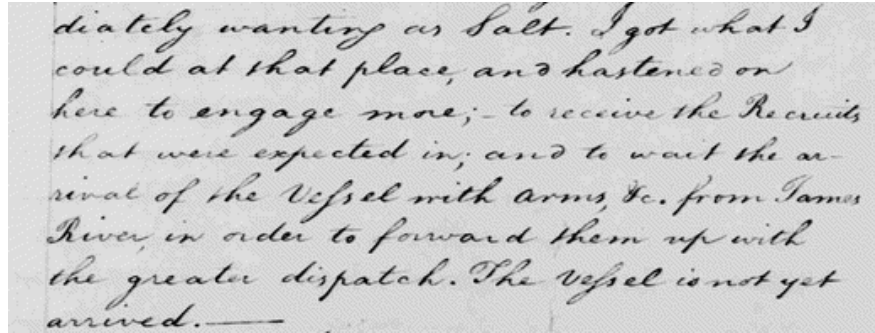 diately wanting as Salt. I got what I
could at that place, and hastened on
here to engage more; - to receive the Recruits
that were expected in; and to wait the ar-
rival of the Vessel with arms, &c. from James
River, in order to forward them up with
the greater dispatch. The Vessel is not yet
arrived.——